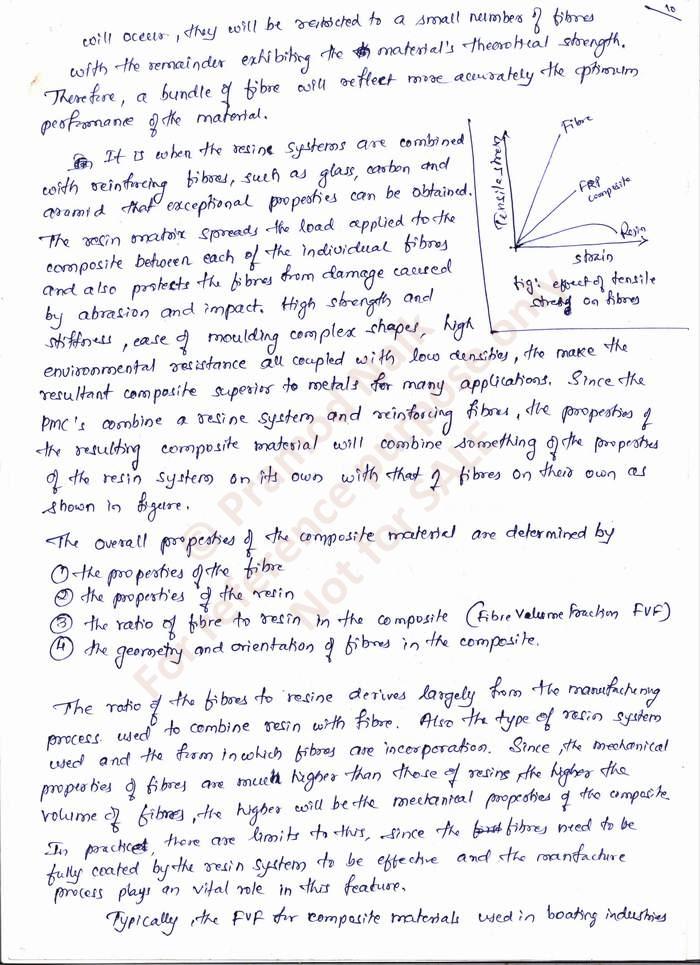 10
will occur, they will be restricted to a small number of fibres
with the remainder exhibiting the material's theoretical strength.
Therefore, a bundle of fibre will reflect more accurately the optimum
performance of the material.
It is when the resine systems are combined
with reinforcing fibres, such as glass, carbon and
aramid that exceptional properties can be obtained.
The resin matrix spreads the load applied to the
composite between each of the individual fibres
and also protects the fibres from damage caused
by abrasion and impact. High strength and
stiffness, ease of moulding complex shapes, high
environmental resistance all coupled with low densities, the make the
resultant composite superior to metals for many applications. Since the
PMC's combine a resine system and reinforcing fibres, the properties of
the resulting composite material will combine something of the properties
of the resin system on its own with that of fibres on their own as
shown in figure.
Tensile stress
Fibre
FRP
composite
Resin
strain
Fig: effect of tensile
on fibres
The overall properties of the composite material are determined by
① the properties of the fibre
② the properties of the resin
③ the ratio of fibre to resin in the composite (Fibre Volume Fraction FVF)
④ the geometry and orientation of fibres in the composite.
The ratio of the fibres to resine derives largely from the manufacturing
process used to combine resin with fibre. Also the type of resin system
used and the form in which fibres are incorporation. Since, the mechanical
properties of fibres are much higher than those of resins, the higher the
volume of fibres, the higher will be the mechanical properties of the composite
In practice, there are limits to this, since the fibres need to be
fully coated by the resin system to be effective and the manfacture
process plays an vital role in this feature.
Typically, the FVF for composite materials used in boating industries
© Pramod Naik
For reference purpose only
Not for SALE